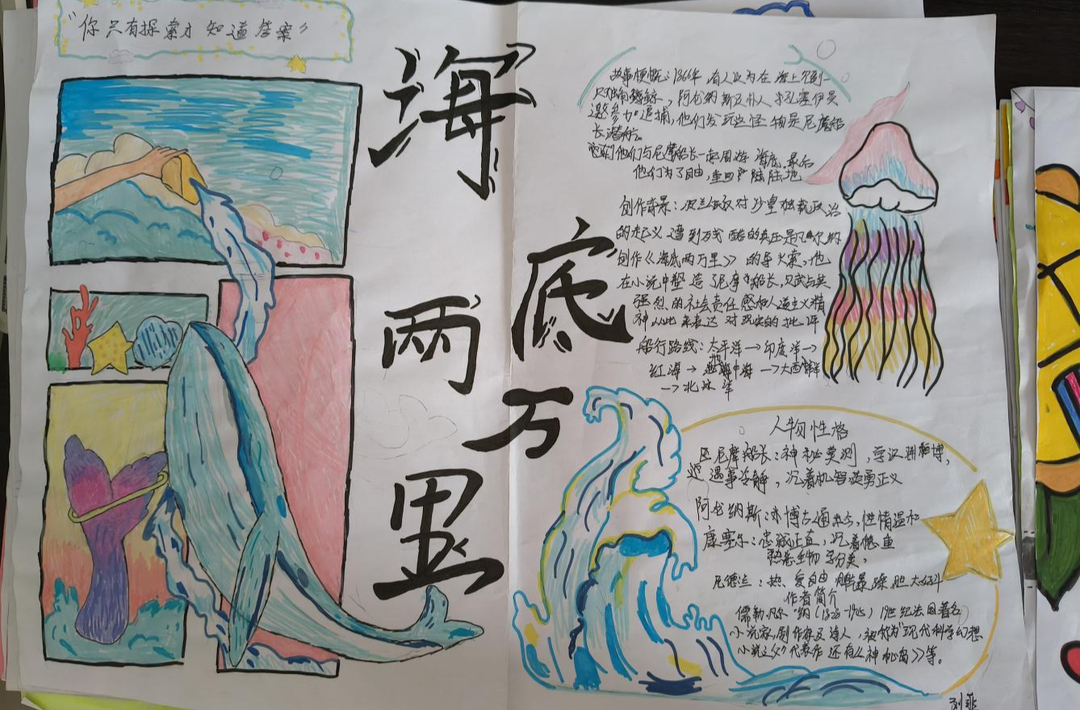 “你只有探索才知道答案”
海底两万里
故事梗概：1866年，有人以为在海上见到一
，阿龙纳斯及仆人
邀参加追捕，他们发现这怪物是尼摩船
长潜船。
他们与尼摩船长一起周游海底，最后
他们为了自由，重回陆地
创作背景：波兰人民反对沙皇独裁政治
的起义遭到残酷的镇压是凡尔纳
创作《海底两万里》的导火索，他
在小说中塑造了尼摩船长，
强烈的社会责任感和人道主义精
神以此来表达对现实的批评
船行路线：太平洋→印度洋→
红海→地中海→大西洋
→北冰洋
人物性格
尼摩船长：神秘莫测，学识渊博，
遇事冷静，沉着机智英勇正义
阿龙纳斯：博古通今，性情温和
康塞尔：忠诚正直，沉着
生物分类，
尼德兰：热爱自由
作者简介
儒勒·凡尔纳（1828-1905）19世纪法国著名
小说家，剧作家及诗人，被称为“现代科学幻想
小说之父”代表作还有《神秘岛》等。
刘菲